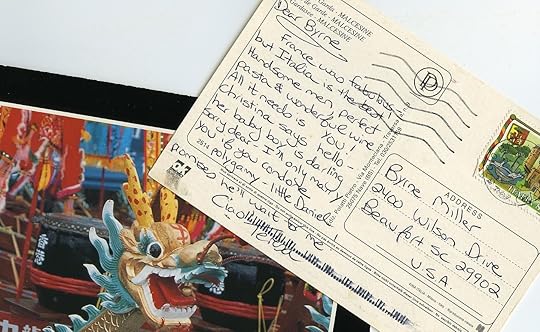 Garda - MALCESINE
de Garde - MALCESINE
Gardasee - MALCESINE
Dear Byrne,
France was fabulous
but Italia is the best!
Handsome men, perfect
pasta & wonderful wine
All it needs is you!
Christina says hello -
the baby boy is darling
Sorry dear - I'll only marry
you if you condone
polygamy - little Daniel
promises he'll wait for me
Ciao!
2014
ADDRESS
Byrne Miller
2400 Wilson Drive
Beaufort SC 29902
U.S.A.